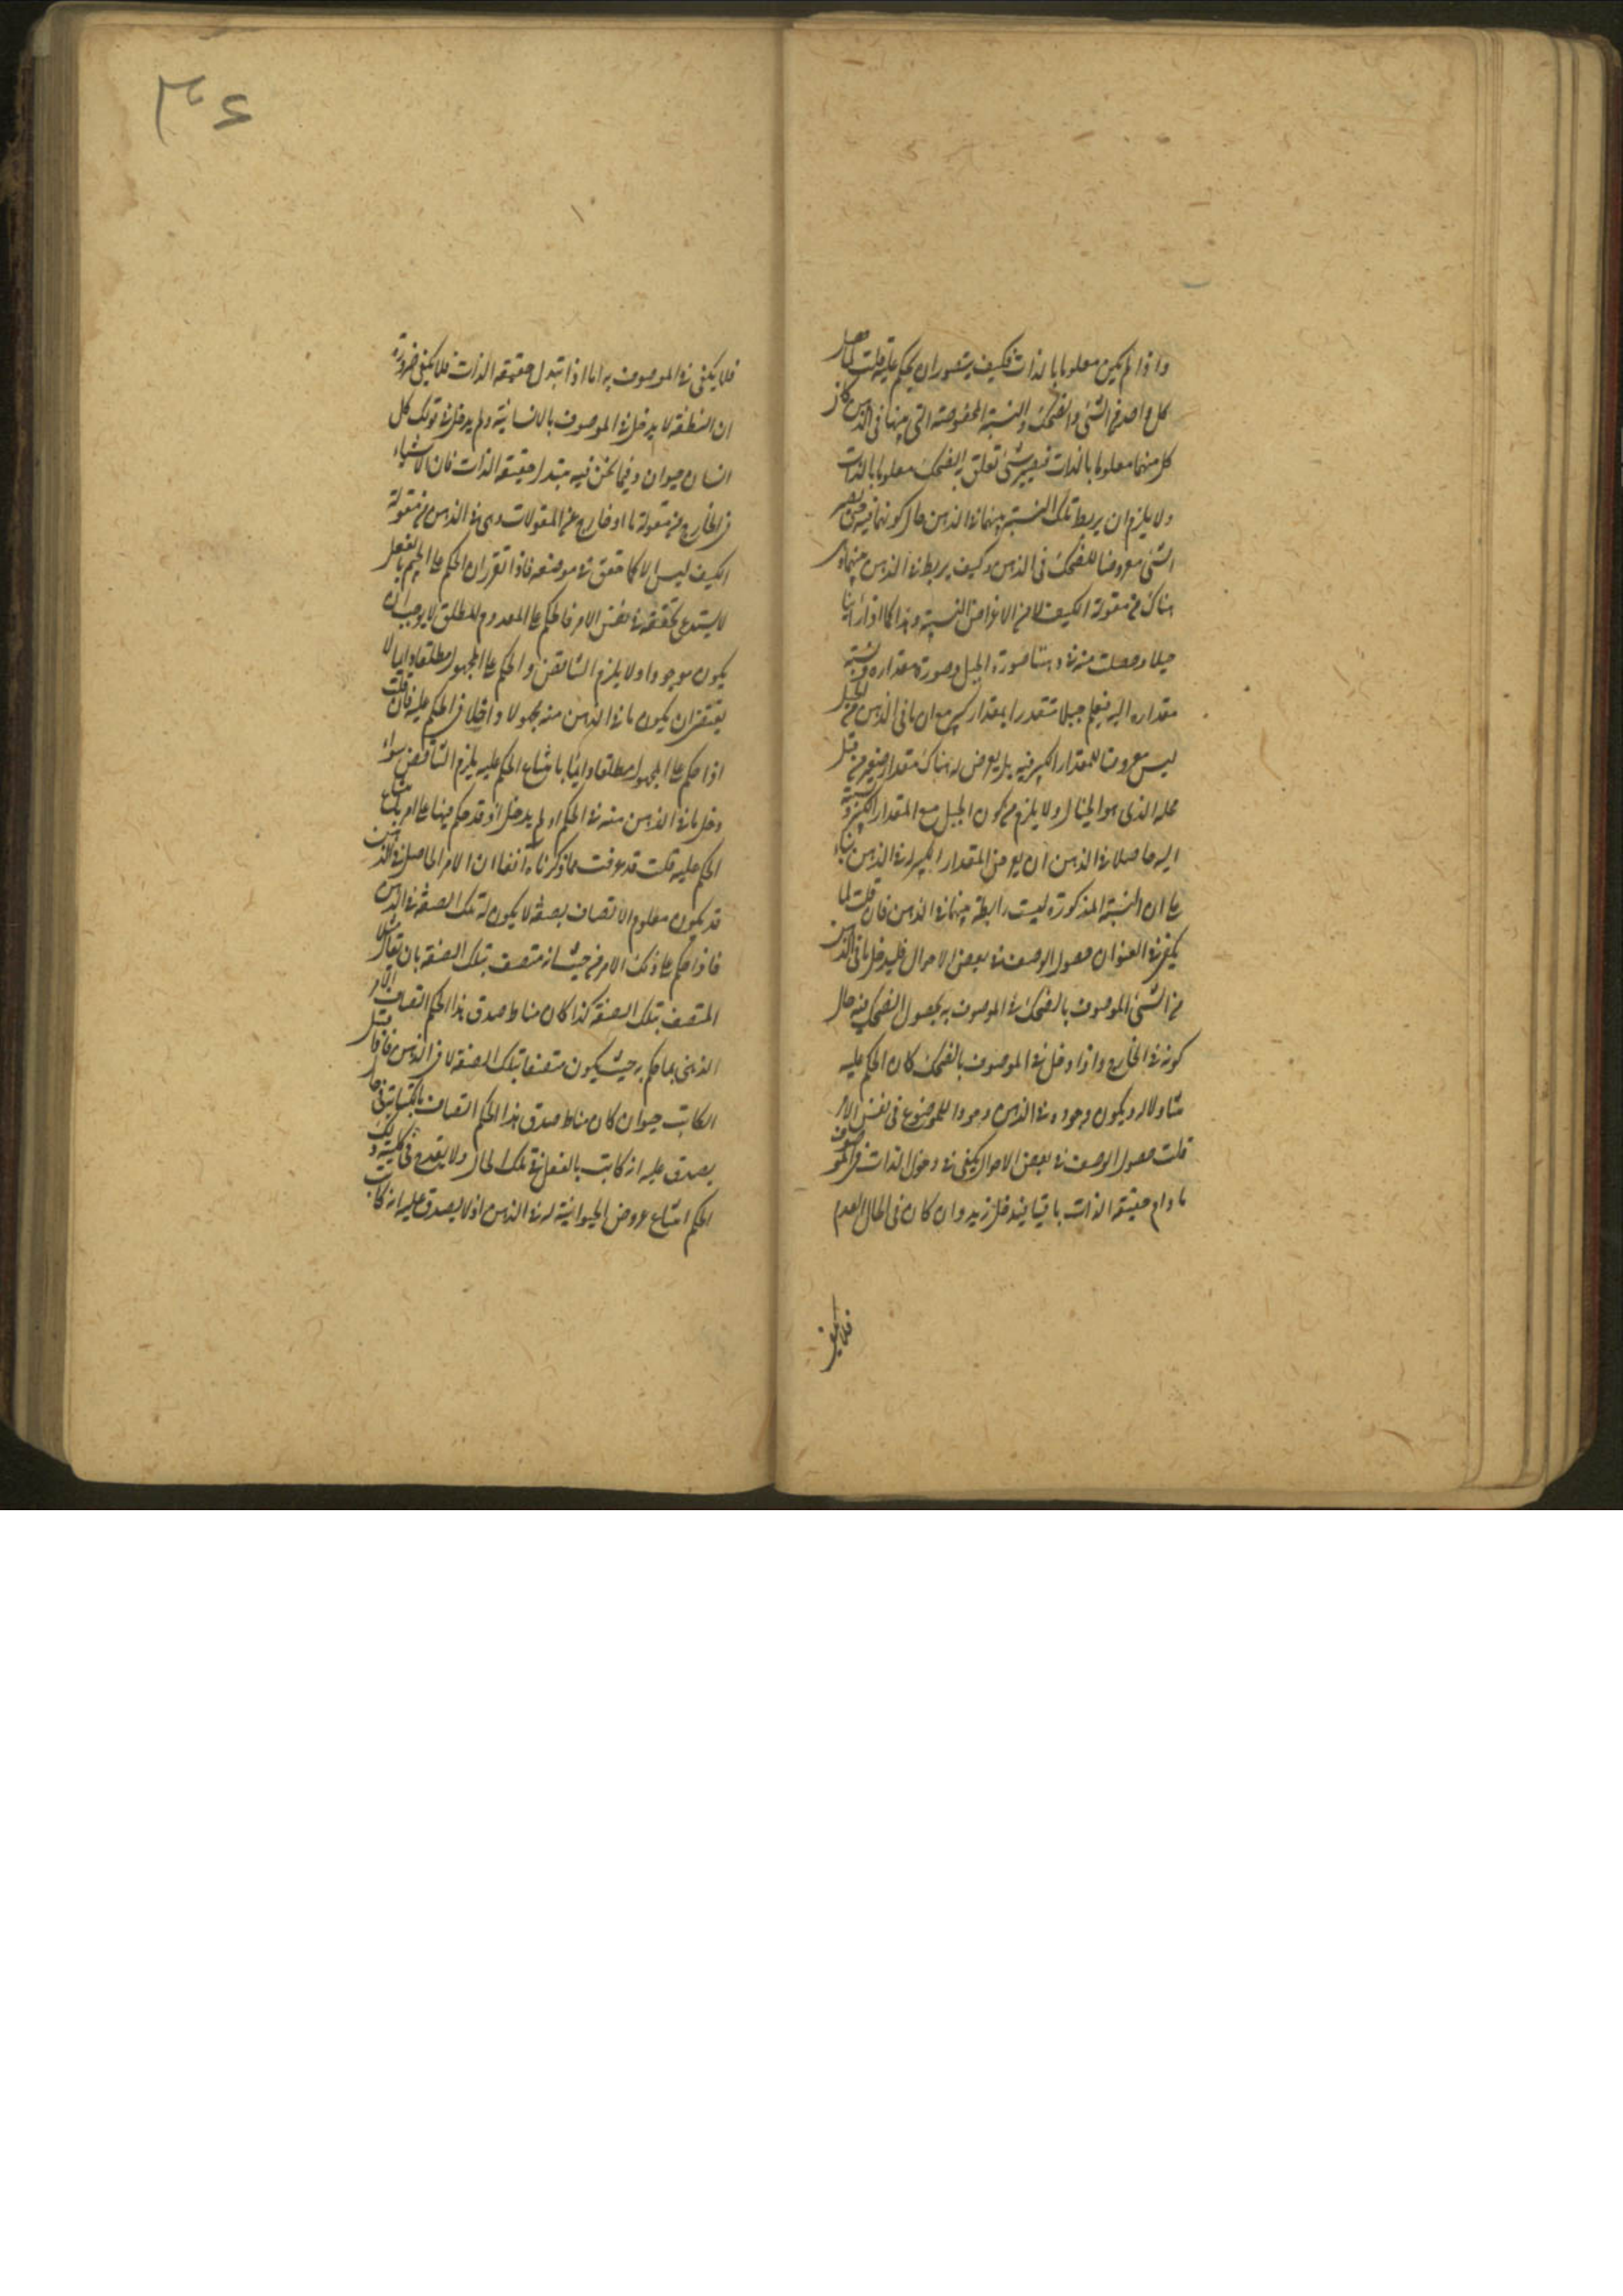 واذا لم يكن معلوما بالذات فكيف يتصور ان يحكم عليه قلت لما حصل
كل واحد من الشئ والضحك والنسبة المخصوصة التى بينهما فى الذهن كان
كل منهما معلوما بالذات فيصير شئ تعلق به الضحك معلوما بالذات
ولا يلزم ان يربط تلك النسبة بينهما فى الذهن حال كونهما فيه حتى يصير
الشئ معروضا للضحك فى الذهن وكيف يربط فى الذهن بينهما وهى
هناك من مقولة الكيف لا من الاعراض النسبية وهذا كما اذا راينا
جبلا وحصلت منه فى ذهننا صورة الجبل وصورة مقداره ونسبة
مقداره اليه فيعلم جبلا متقدرا بمقدار كبير مع ان ما فى الذهن من الجبل
ليس معروضا للمقدار الكبير فيه بل يعرض له هناك مقدار صغير من قبل
محله الذى هو الخيال ولا يلزم من كون الجبل مع المقدار الكبير ونسبته
اليه حاصلا فى الذهن ان يعرض المقدار الكبير له فى الذهن بناء
على ان النسبة المذكورة ليست رابطة بينهما فى الذهن فان قلت لما
يكفى فى العنوان حصول الوصف فى بعض الاحوال فليدخل ما فى الذهن
من الشئ الموصوف بالضحك فى الموصوف به بحصول الضحك فيه حال
كونه فى الخارج واذا دخل فى الموصوف بالضحك كان الحكم عليه
متناولا له ويكون وجوده فى الذهن وجودا للموضوع فى نفس الامر
قلت حصول الوصف فى بعض الاحوال يكفى فى دخول الذات فى الموصوف
ما دام حقيقة الذات باقيا فيدخل زيد وان كان فى الحال العدم
فلا يكفى
٣٤
فلا يكفى فى الموصوف به اما اذا تبدل حقيقة الذات فلا يكفى ضرورة
ان النطفة لا يدخل فى الموصوف بالانسانية ولم يدخل فى قولك كل
انسان حيوان وفيما نحن فيه يتبدل حقيقة الذات فان الاشياء
فى الخارج من مقولة ما او خارج عن المقولات وهى فى الذهن من مقولة
الكيف ليس الا كما حقق فى موضعه فاذا تقرر ان الحكم على الجسم بالفعل
لا يستدعى تحققه فى نفس الامر فالحكم على المعدوم المطلق لا يوجب ان
يكون موجودا ولا يلزم التناقض والحكم على المجهول مطلقا دايما لا
يقتضى ان يكون ما فى الذهن منه مجهولا داخلا فى الحكم عليه فان قلت
اذا حكم على المجهول مطلقا دايما بامتناع الحكم عليه يلزم التناقض سواء
دخل ما فى الذهن منه فى الحكم او لم يدخل اذ قد حكم فيها على امر بامتناع
الحكم عليه قلت قد عرفت مما ذكرناه آنفا ان الامر الحاصل فى الذهن
قد يكون معلوم الاتصاف بصفة لا يكون له تلك الصفة فى الذهن
فاذا حكم على ذلك الامر من حيث انه متصف بتلك الصفة بان يقال مثلا
المتصف بتلك الصفة كذا كان مناط صدق هذا الحكم اتصاف الامر
الذهنى بما حكم به حيث يكون متصفا بتلك الصفة لا فى الذهن فاذا قيل
الكاتب حيوان كان مناط صدق هذا الحكم اتصاف بالحيوانية فى حال
يصدق عليه انه كاتب بالفعل فى تلك الحال ولا يقدح فى كلية ذلك
الحكم امتناع عروض الحيوانية له فى الذهن اذ لا يصدق عليه انه كاتب